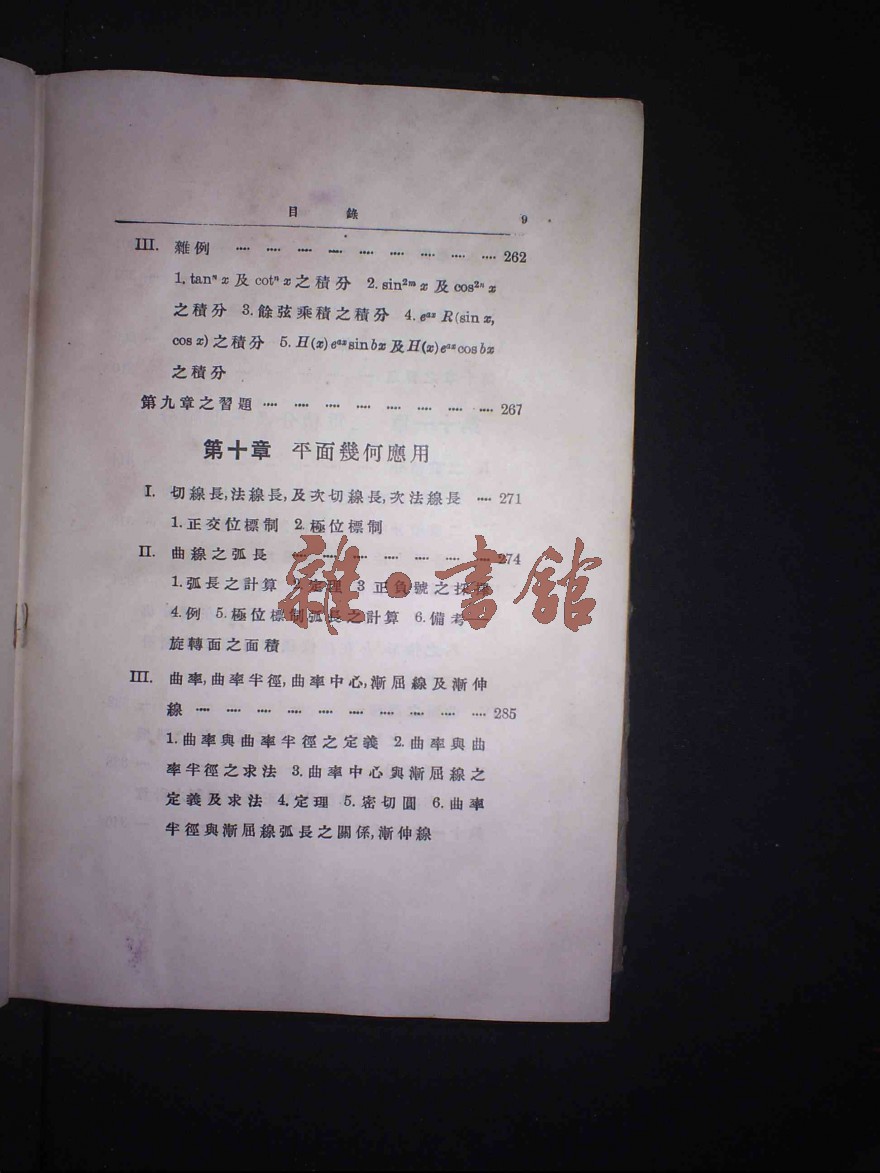 目 錄 9
III. 雜例 …… 262
1. tanⁿ x 及 cotⁿ x 之積分 2. sin²ᵐ x 及 cos²ⁿ x
之積分 3. 餘弦乘積之積分 4. eᵃˣ R(sin x,
cos x) 之積分 5. H(x) eᵃˣ sin bx 及 H(x) eᵃˣ cos bx
之積分
第九章之習題 …… 267
第十章 平面幾何應用
I. 切線長,法線長,及次切線長,次法線長 … 271
1. 正交位標制 2. 極位標制
II. 曲線之弧長 …… 274
1. 弧長之計算 2. 定理 3 正負號之採擇
4. 例 5. 極位標制弧長之計算 6. 備考—
旋轉面之面積
III. 曲率,曲率半徑,曲率中心,漸屈線及漸伸
線 …… 285
1. 曲率與曲率半徑之定義 2. 曲率與曲
率半徑之求法 3. 曲率中心與漸屈線之
定義及求法 4. 定理 5. 密切圓 6. 曲率
半徑與漸屈線弧長之關係,漸伸線
雜·書館